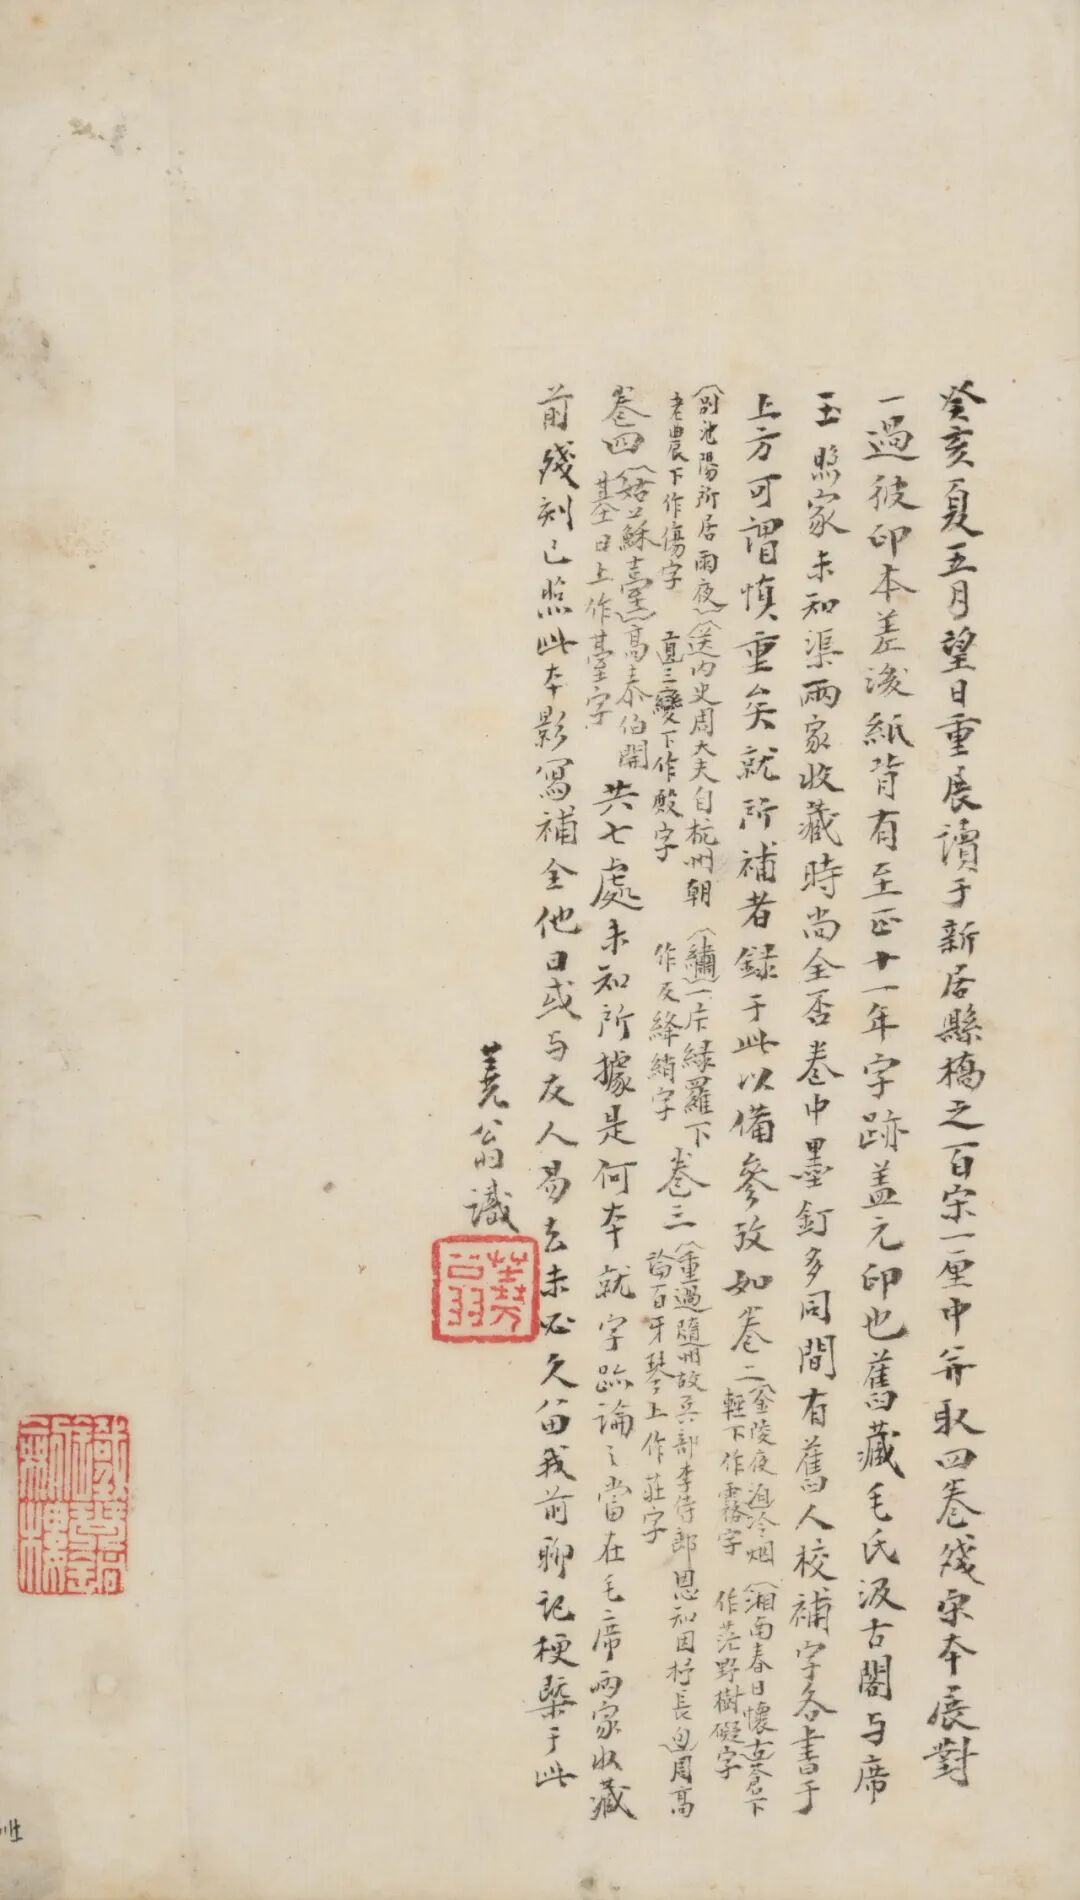 癸亥夏五月望日重展讀于新居縣橋之百宋一廛中并取四卷殘宋本展對
一過彼印本差後紙背有至正十一年字跡盖元印也舊藏毛氏汲古閣与席
玉照家未知渠兩家收藏時尚全否卷中墨釘多同間有舊人校補字各書于
上方可謂慎重矣就所補者録于此以備參攷如卷二
〈金陵夜泊冷烟
輕下作靄字
〈湘南春日懷古蒼下
作茫野樹礙字
〈別池陽所居雨夜〉
老農下作傷字
〈送内史周大夫自杭州朝
直三變下作殿字
〈繡〉一片緑羅下
作反絳綃字
卷三
〈重過隨州故兵部李侍郎恩知因抒長句〉周高
論百牙琴上作莊字
卷四
〈姑蘇臺〉高泰伯開
基日上作臺字
共七處未知所據是何本就字跡論之當在毛席兩家收藏
前殘刻已照此本影寫補全他日或与友人易去未必久畱我前聊記梗槩于此
蕘翁識
蕘翁